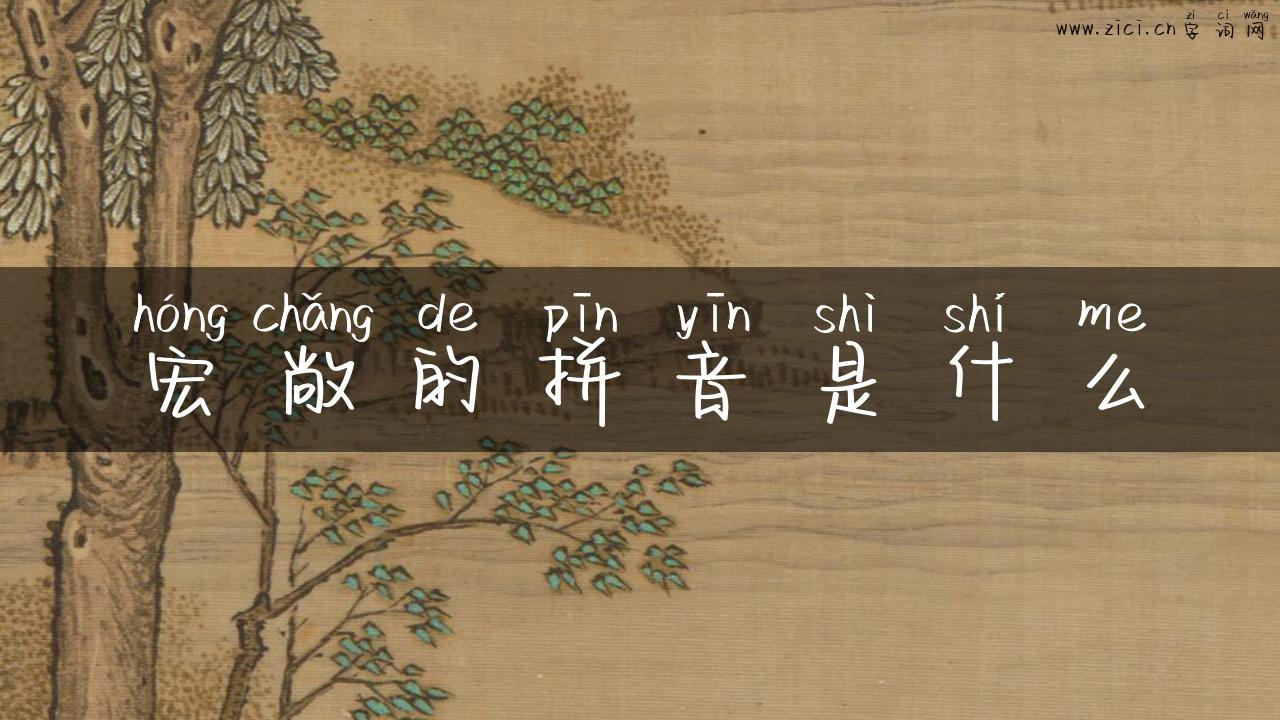 zì cí wǎng
www.zici.cn 字词网
hóng chǎng de pīn yīn shì shí me
宏敞的拼音是什么